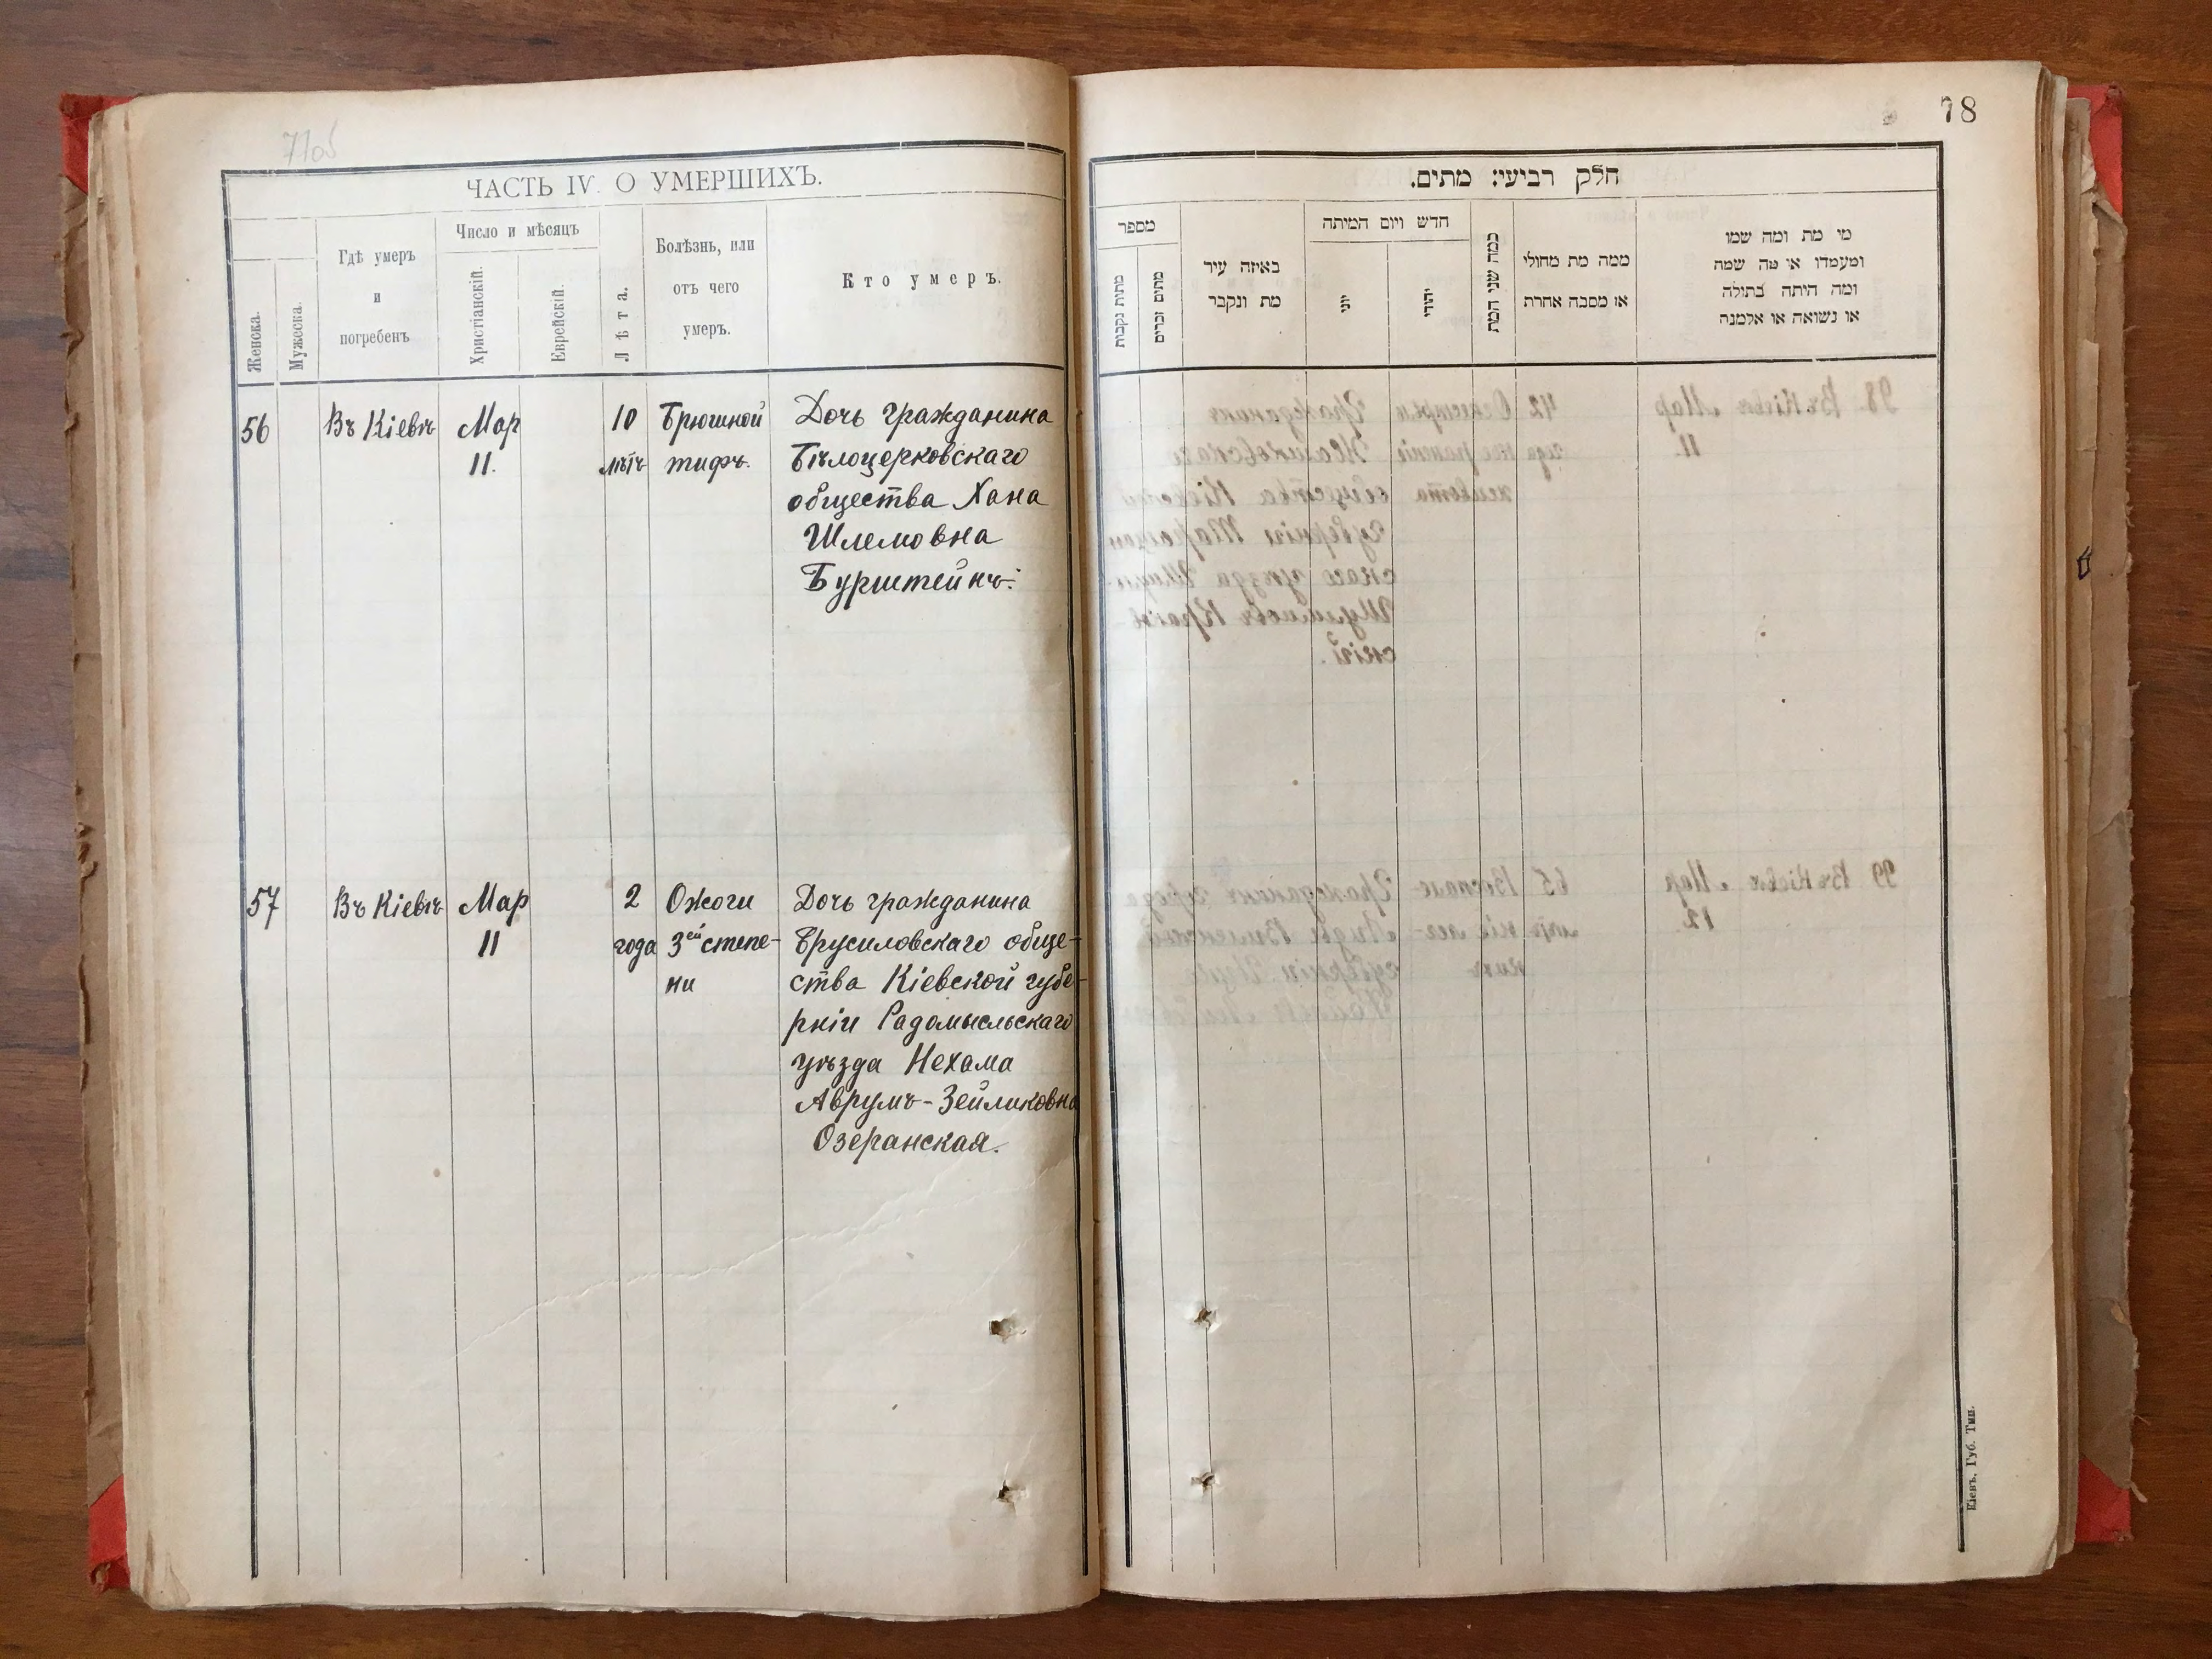 ЧАСТЬ IV. О УМЕРШИХЪ.
Женска.
Мужеска.
Гдѣ умеръ
и
погребенъ
Число и мѣсяцъ
Христіанскій.
Еврейскій.
Лѣта.
Болѣзнь, или
отъ чего
умеръ.
Кто умеръ.
56
Въ Кіевѣ
Мар
11.
10
лѣтъ
Брюшной
тифъ.
Дочь гражданина
Бѣлоцерковскаго
общества Хана
Шлемовна
Бурштейнъ.
57
Въ Кіевѣ
Мар
11
2
года
Ожоги
3ей степе-
ни
Дочь гражданина
Брусиловскаго обще-
ства Кіевской губе-
рніи Радомысльскаго
уѣзда Нехама
Аврумъ-Зейликовна
Озеранская.
78
חלק רביעי: מתים.
מספר
מתות נקבות
מתים זכרים
באיזה עיר
מת ונקבר
חדש ויום המיתה
יוני
יהודי
כמה שני המת
ממה מת מחולי
או מסבה אחרת
מי מת ומה שמו
ומעמדו או מה שמה
ומה היתה בתולה
או נשואה או אלמנה
Кіевъ, Губ. Тип.